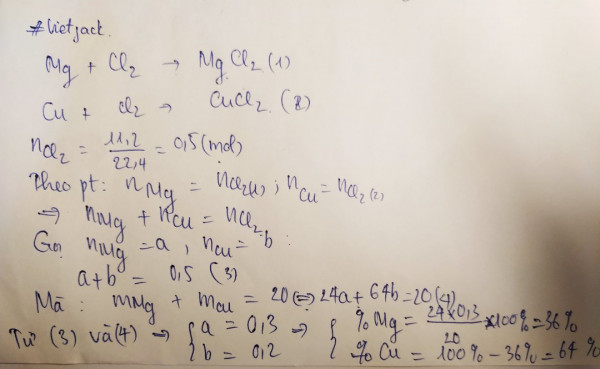 #Vietjack.
Mg + Cl₂ → MgCl₂ (1)
Cu + Cl₂ → CuCl₂ (2)
nCl₂ = 11,2/22,4 = 0,5 (mol)
Theo pt: nMg = nCl₂(1) ; nCu = nCl₂(2)
⇒ nMg + nCu = nCl₂
Gọi nMg = a, nCu = b :
a+b = 0,5 (3)
Mà : mMg + mCu = 20 ⇔ 24a + 64b = 20 (4)
Từ (3) và (4) ⇒ { a = 0,3 ⇒ { % Mg = 24×0,3/20 × 100% = 36%
b = 0,2 % Cu = 100% − 36% = 64 %